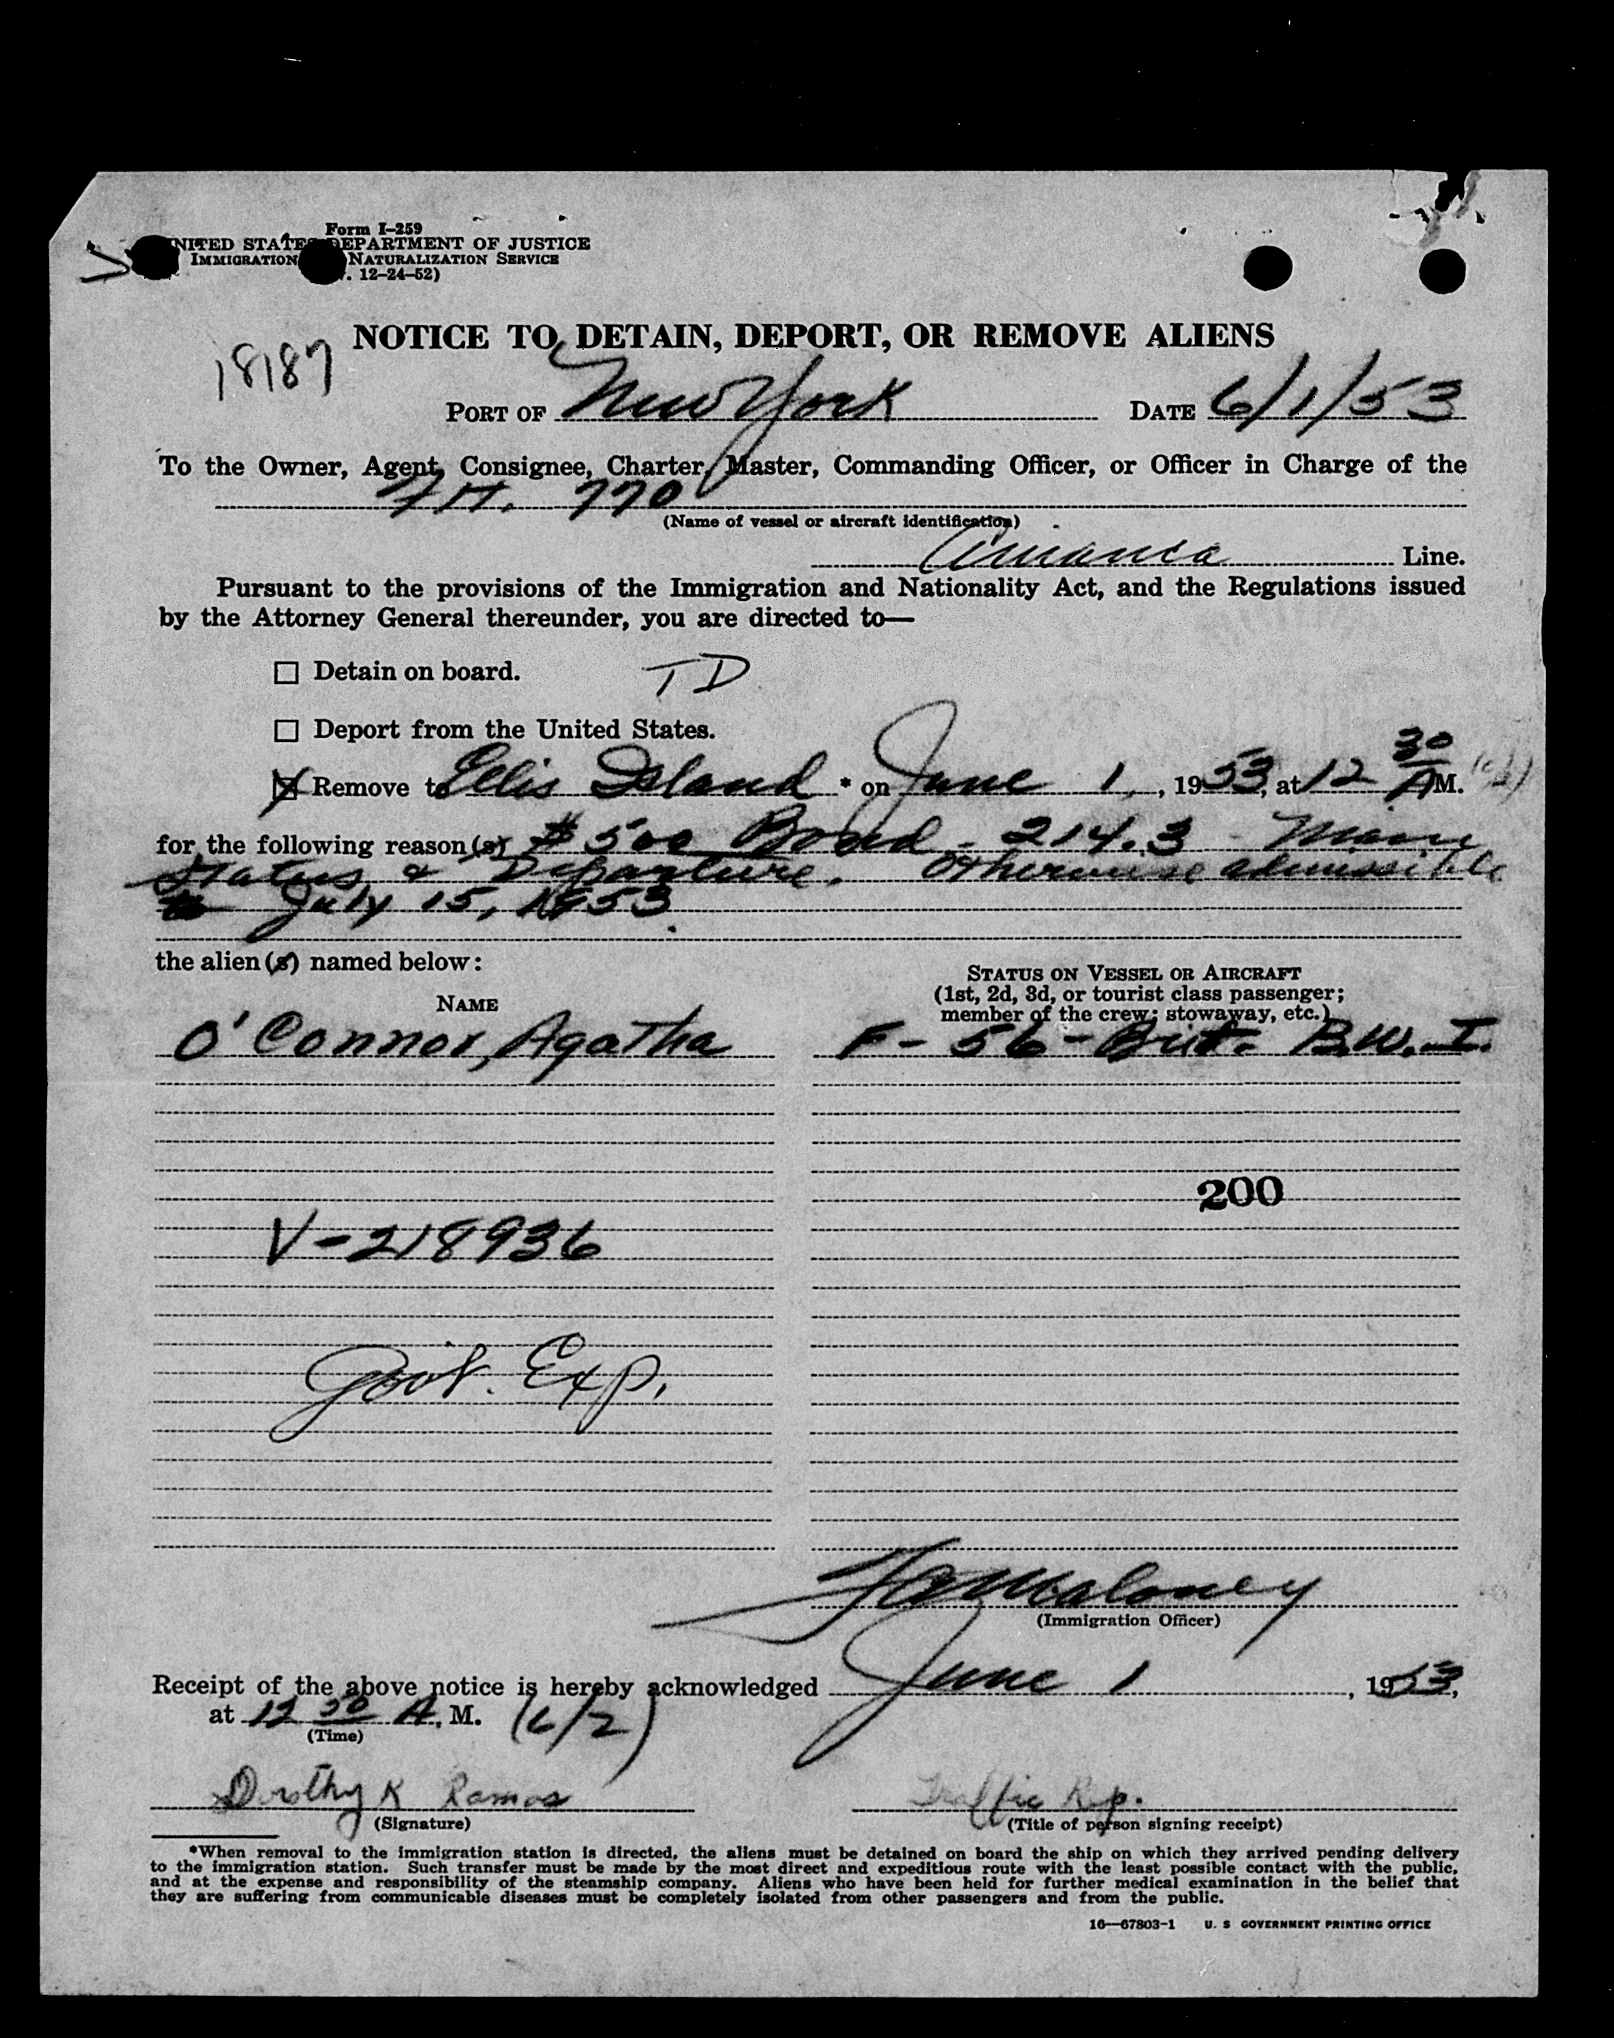 Form I-259
UNITED STATES DEPARTMENT OF JUSTICE
IMMIGRATION NATURALIZATION SERVICE
12-24-52)
NOTICE TO DETAIN, DEPORT, OR REMOVE ALIENS
18187
PORT OF New York DATE 6/1/53
To the Owner, Agent, Consignee, Charter, Master, Commanding Officer, or Officer in Charge of the
Flt. 770
(Name of vessel or aircraft identification)
Line.
Pursuant to the provisions of the Immigration and Nationality Act, and the Regulations issued
by the Attorney General thereunder, you are directed to—
☐ Detain on board. TD
☐ Deport from the United States.
☒ Remove to Ellis Island * on June 1, 1953, at 12 30 A M.
for the following reason(s) $500 Bond - 214.3 -
Status & Departure. Otherwise admissible
to July 15, 1953.
the alien(s) named below:
NAME
STATUS ON VESSEL OR AIRCRAFT
(1st, 2d, 3d, or tourist class passenger;
member of the crew; stowaway, etc.)
O'Connor, Agatha F - 56 - Brit. B.W.I.
200
V-218936
Gov't. Exp.
Maloney
(Immigration Officer)
Receipt of the above notice is hereby acknowledged June 1, 1953,
at 12 30 A. M. (6/2)
(Time)
Dorothy K Ramos Traffic Rep.
(Signature) (Title of person signing receipt)
*When removal to the immigration station is directed, the aliens must be detained on board the ship on which they arrived pending delivery
to the immigration station. Such transfer must be made by the most direct and expeditious route with the least possible contact with the public,
and at the expense and responsibility of the steamship company. Aliens who have been held for further medical examination in the belief that
they are suffering from communicable diseases must be completely isolated from other passengers and from the public.
16—67803-1 U. S GOVERNMENT PRINTING OFFICE